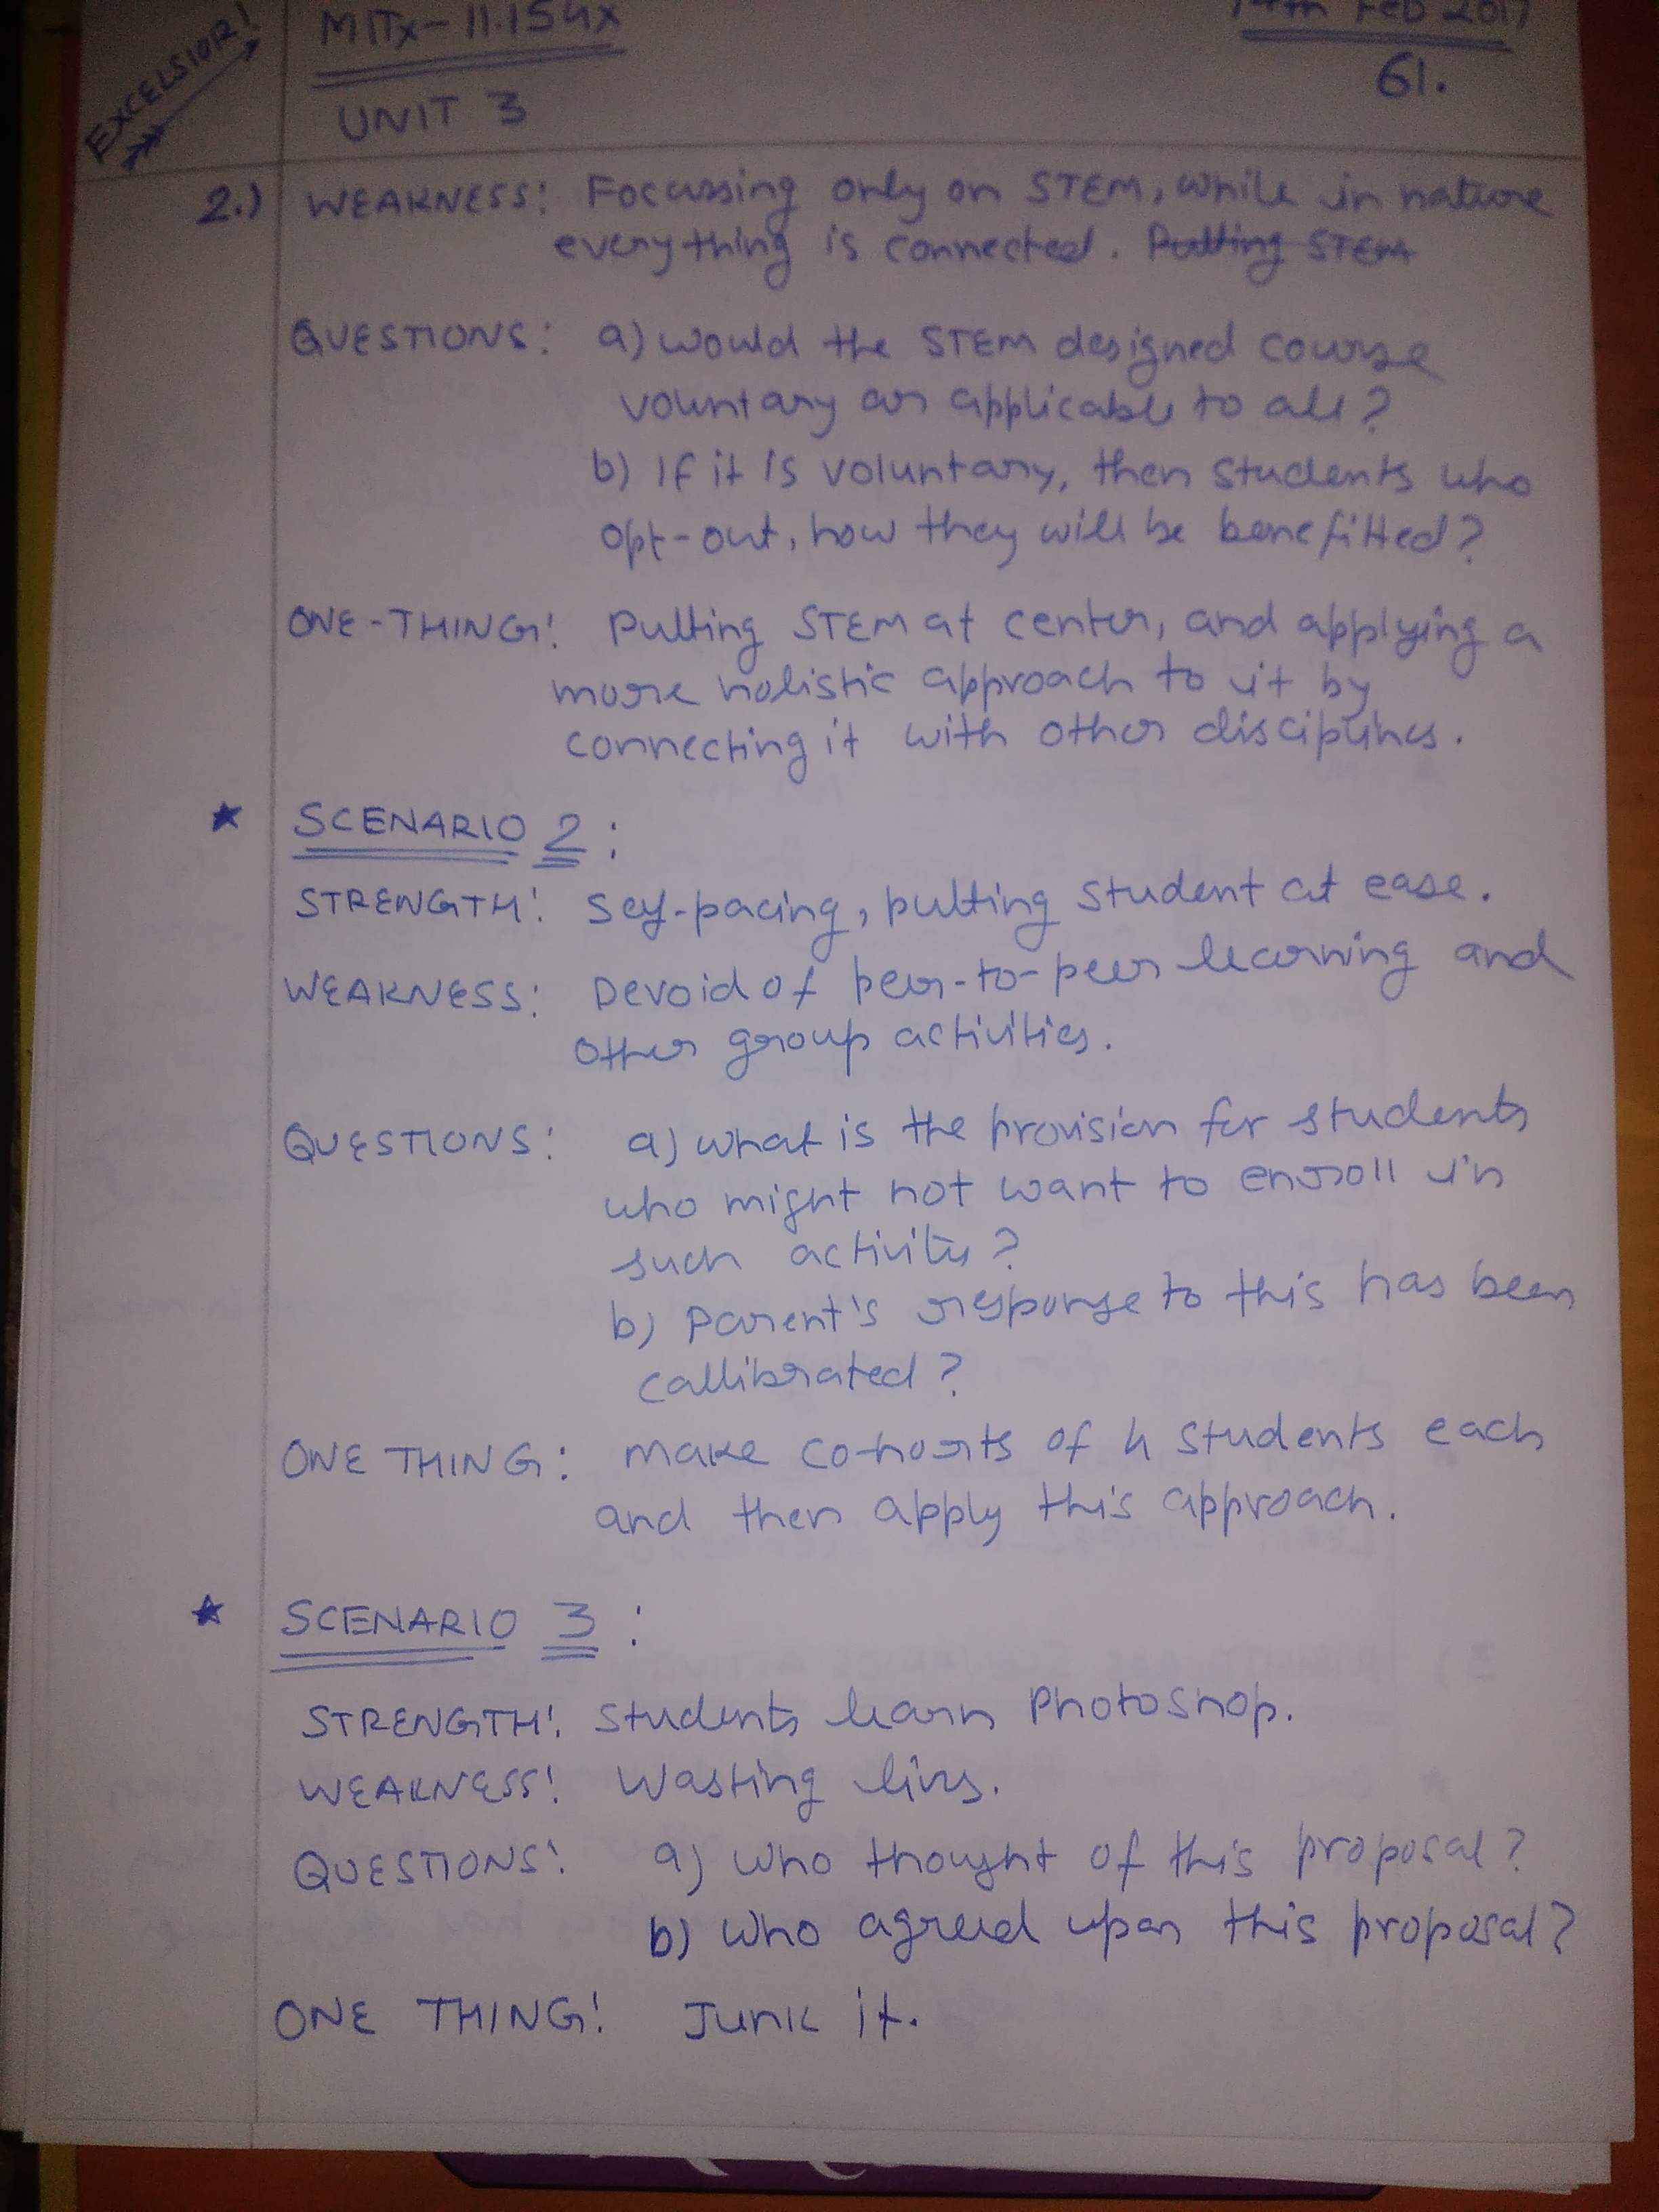 EXCELSIOR!
MITx-11.154x
14th Feb 2017
61.
UNIT 3
2.) WEAKNESS: Focussing only on STEM, while in nature
everything is connected. Putting STEM
QUESTIONS: a) would the STEM designed course
voluntary or applicable to all?
b) If it is voluntary, then students who
opt-out, how they will be benefitted?
ONE-THING: Putting STEM at center, and applying a
more holistic approach to it by
connecting it with other disciplines.
★ SCENARIO 2:
STRENGTH: Self-pacing, putting student at ease.
WEAKNESS: Devoid of peer-to-peer learning and
other group activities.
QUESTIONS: a) what is the provision for students
who might not want to enroll in
such activity?
b) Parent's response to this has been
callibrated?
ONE THING: make co-horts of 4 students each
and then apply this approach.
★ SCENARIO 3:
STRENGTH: Students learn Photoshop.
WEAKNESS: Wasting lives.
QUESTIONS: a) who thought of this proposal?
b) who agreed upon this proposal?
ONE THING: Junk it.